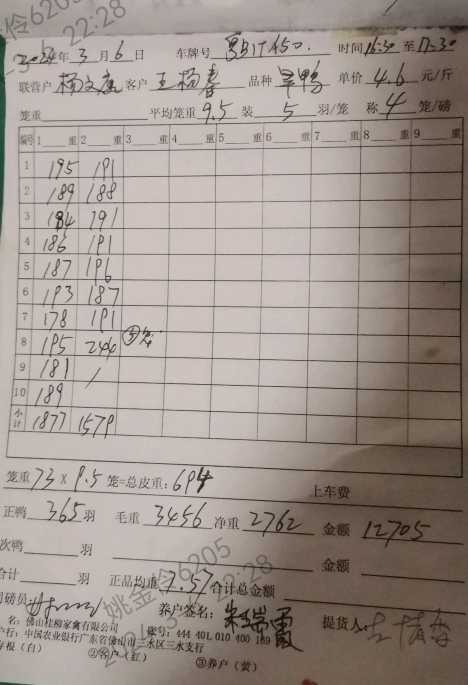 2024年3月6日 车牌号 时间16:30至17:30
联营户 客户 王杨春 品种 旱鸭 单价4.6元/斤
笼重 平均笼重9.5装5羽/笼 称4笼/磅
编号 1 重 2 重 3 重 4 重 5 重 6 重 7 重 8 重 9 重
1 195 191
2 189 188
3 184 191
4 186 191
5 187 196
6 193 187
7 178 191
8 195 244 ⑤笼
9 181 /
10 189
小计 1877 1579
笼重73×9.5笼=总皮重:694 上车费
正鸭365羽 毛重3456净重2762 金额12705
次鸭 羽 金额
合计 羽 正品均重7.57合计总金额
司磅员 养户签名: 提货人:
名:佛山桂柳家禽有限公司 账号:444 401 010 400 169
户行:中国农业银行广东省佛山市三水区三水支行
存根(白) ②客户(红) ③养户(黄)
姚金伶6205
22:28